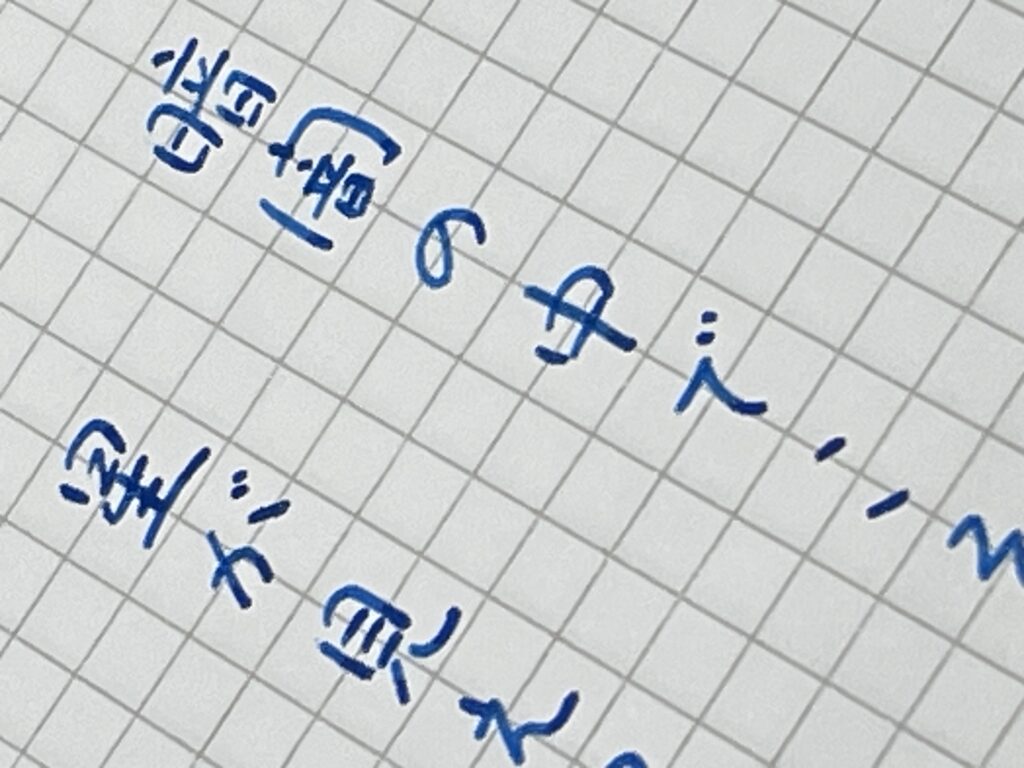 暗闇の中で、
星が見れ